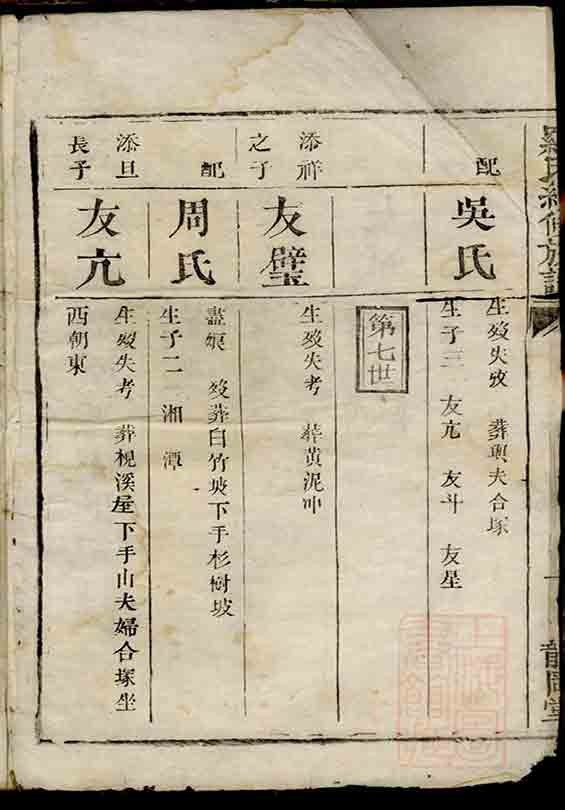 氏續修族譜
龍岡堂
配
吳氏
生歿失攷 葬與夫合塚
生子三 友亢 友斗 友星
第七世
添祥
之子
友璧
生歿失考 葬黃泥冲
配
周氏
歿葬白竹坡下手杉樹坡
生子二 湘 潭
添旦
長子
友亢
生歿失考 葬枧溪屋下手山夫婦合塚坐
西朝東